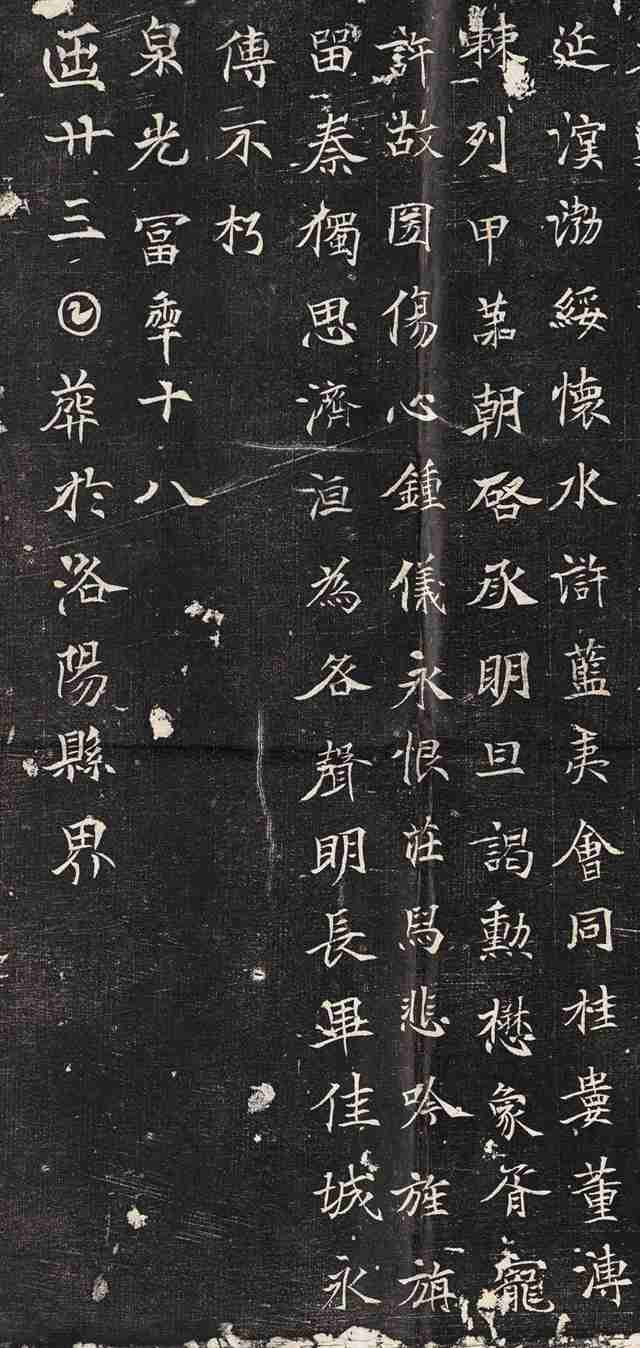 延漠渤綏懷水滸藍夷會同桂婁董溥
棘列甲第朝啓承明旦謁勳懋象胥寵
許故圀傷心鍾儀永恨莊舄悲吟旌旃
留秦獨思濟洹為咎聲明長畢佳城永
傳不朽
泉光冨𠡦十八
𠥱廿三𡆠葬於洛陽縣界